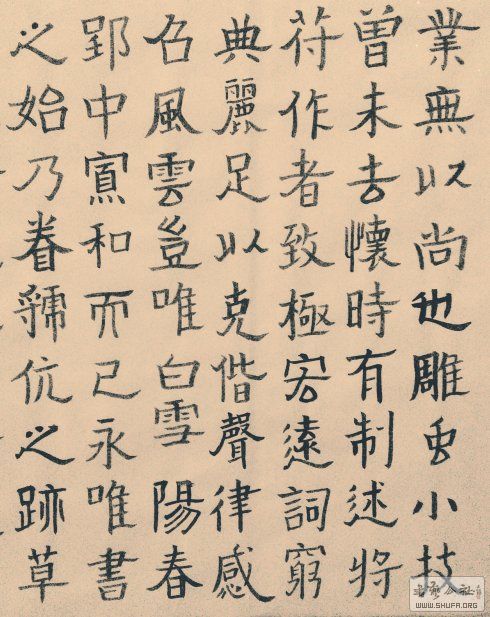 業無以尚也雕虫小技
曽未去懷時有制述將
苻作者致極宏遠詞窮
典麗足以克偕聲律感
召風雲豈唯白雪陽春
郢中寡和而已永唯書
之始乃眷伉之跡草
书艺公社
WWW.SHUFA.ORG